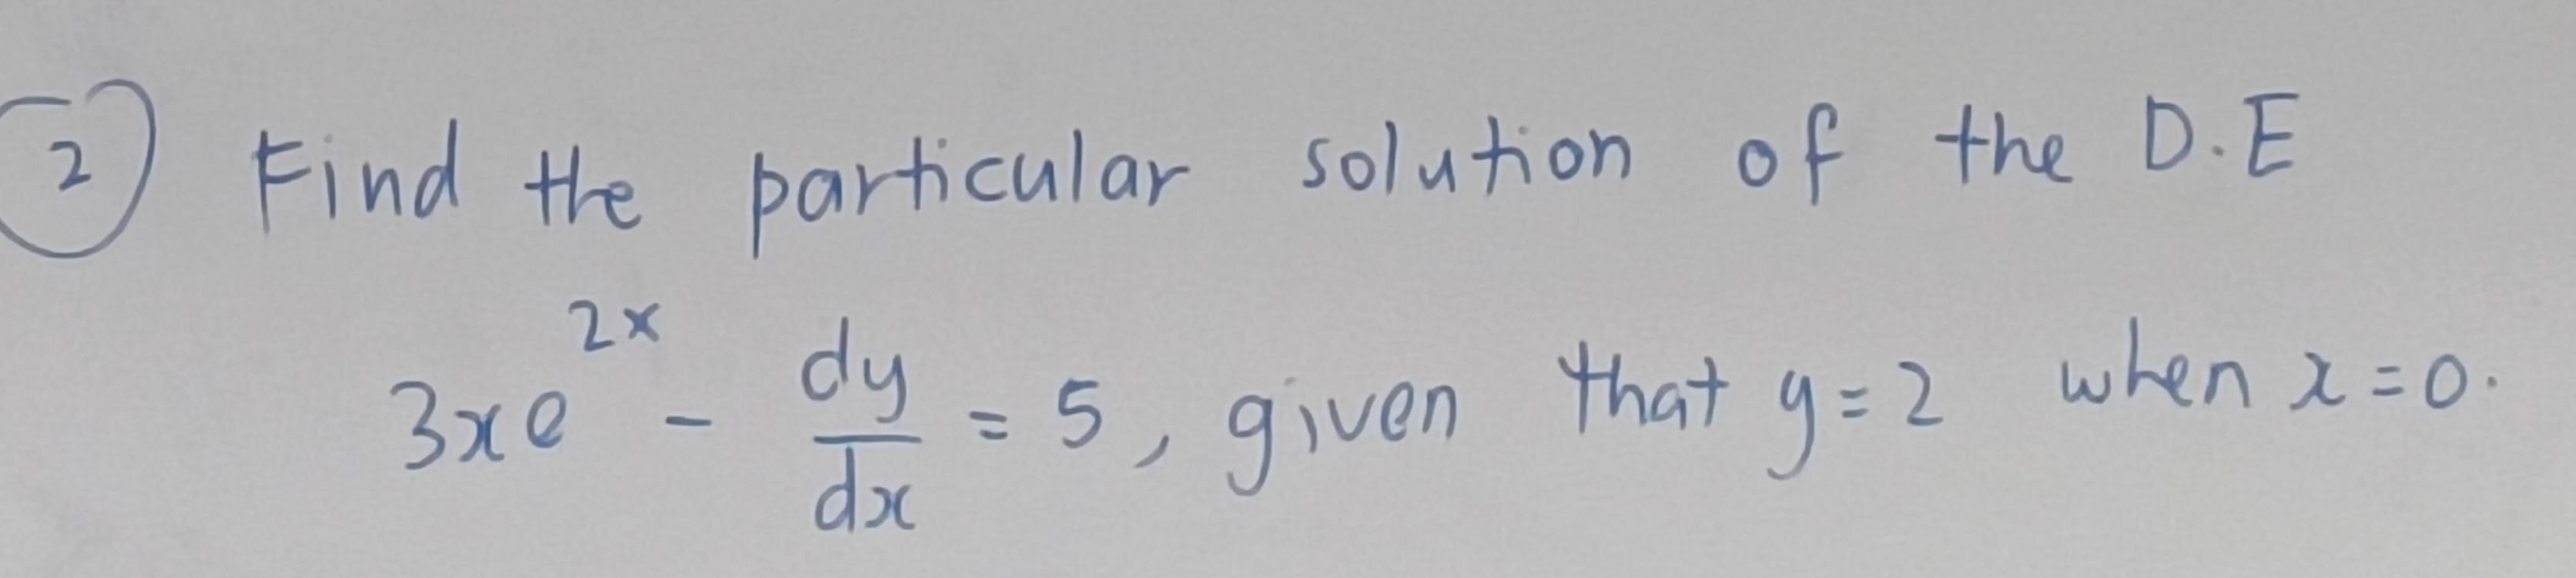 ② Find the particular solution of the D.E
3xe^{2x} - \frac{dy}{dx} = 5, given that y=2 when x=0.